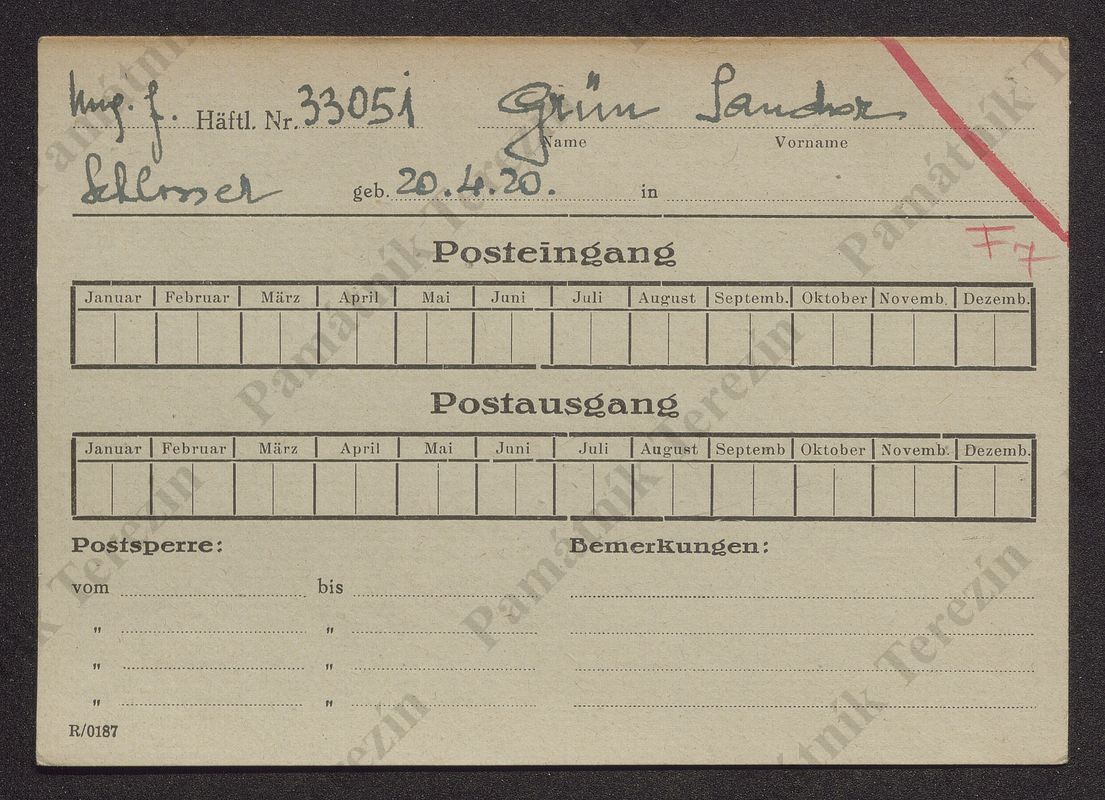 Ung. J. Häftl. Nr. 33051 Grün Sandor
Name Vorname
Schlosser geb. 20.4.20. in
F7
Posteingang
Januar Februar März April Mai Juni Juli August Septemb. Oktober Novemb. Dezemb.
Postausgang
Januar Februar März April Mai Juni Juli August Septemb Oktober Novemb. Dezemb.
Postsperre: Bemerkungen:
vom bis
" "
" "
" "
R/0187
Památník Terezín